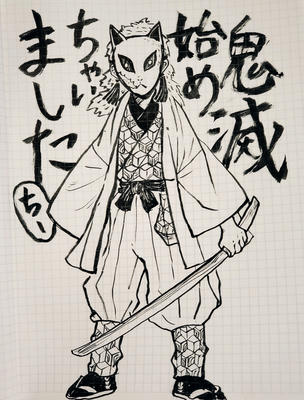 鬼滅
始め
ちゃい
ました
ちー